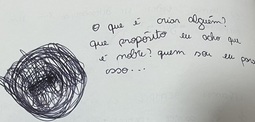 o que é criar alguém?
que propósito eu acho que
é nobre? quem sou eu pra
isso...